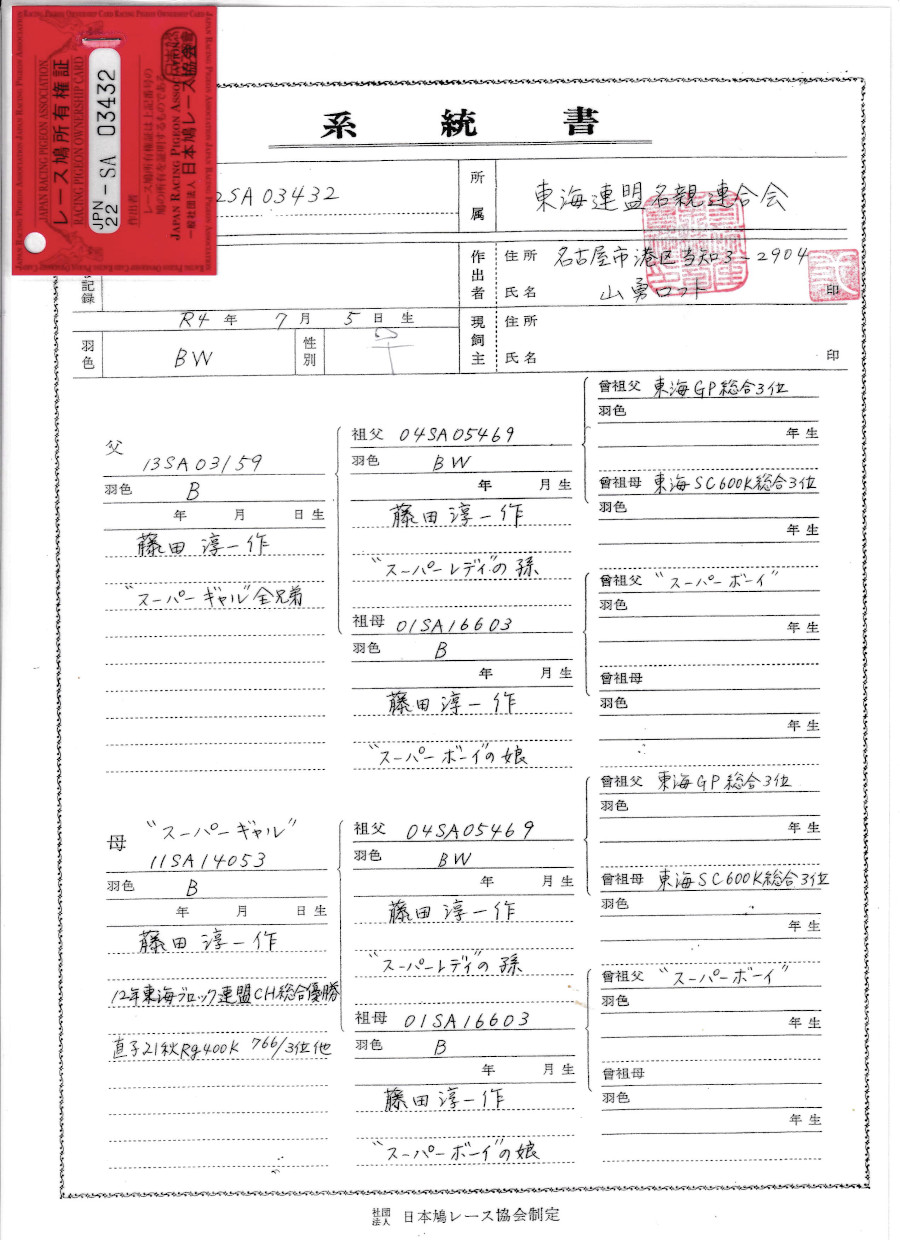 レース鳩所有権証
JAPAN RACING PIGEON ASSOCIATION
RACING PIGEON OWNERSHIP CARD
JPN
22 -SA 03432
作出者
レース鳩所有権証は上記番号の
鳩の所有を証明するものである
JAPAN RACING PIGEON ASSOCIATION
一般社団法人 日本鳩レース協会
系統書
2SA03432
所属 東海連盟名親連合会
記録
作出者 住所 名古屋市港区当知3-2904
氏名 山勇ロフト 印
R4年 7月 5日生
現飼主 住所
氏名 印
羽色 BW 性別
父
13SA03159
羽色 B
年 月 日生
藤田淳一作
"スーパーギャル"全兄弟
祖父 04SA05469
羽色 BW
年 月生
藤田淳一作
"スーパーレディ"の孫
祖母 01SA16603
羽色 B
年 月生
藤田淳一作
"スーパーボーイ"の娘
曾祖父 東海GP総合3位
羽色
年生
曾祖母 東海SC600K総合3位
羽色
年生
曾祖父 "スーパーボーイ"
羽色
年生
曾祖母
羽色
年生
母 "スーパーギャル"
11SA14053
羽色 B
年 月 日生
藤田淳一作
12年東海ブロック連盟CH総合優勝
直子21秋Rg400K 766/3位他
祖父 04SA05469
羽色 BW
年 月生
藤田淳一作
"スーパーレディ"の孫
祖母 01SA16603
羽色 B
年 月生
藤田淳一作
"スーパーボーイ"の娘
曾祖父 東海GP総合3位
羽色
年生
曾祖母 東海SC600K総合3位
羽色
年生
曾祖父 "スーパーボーイ"
羽色
年生
曾祖母
羽色
年生
社団法人 日本鳩レース協会制定